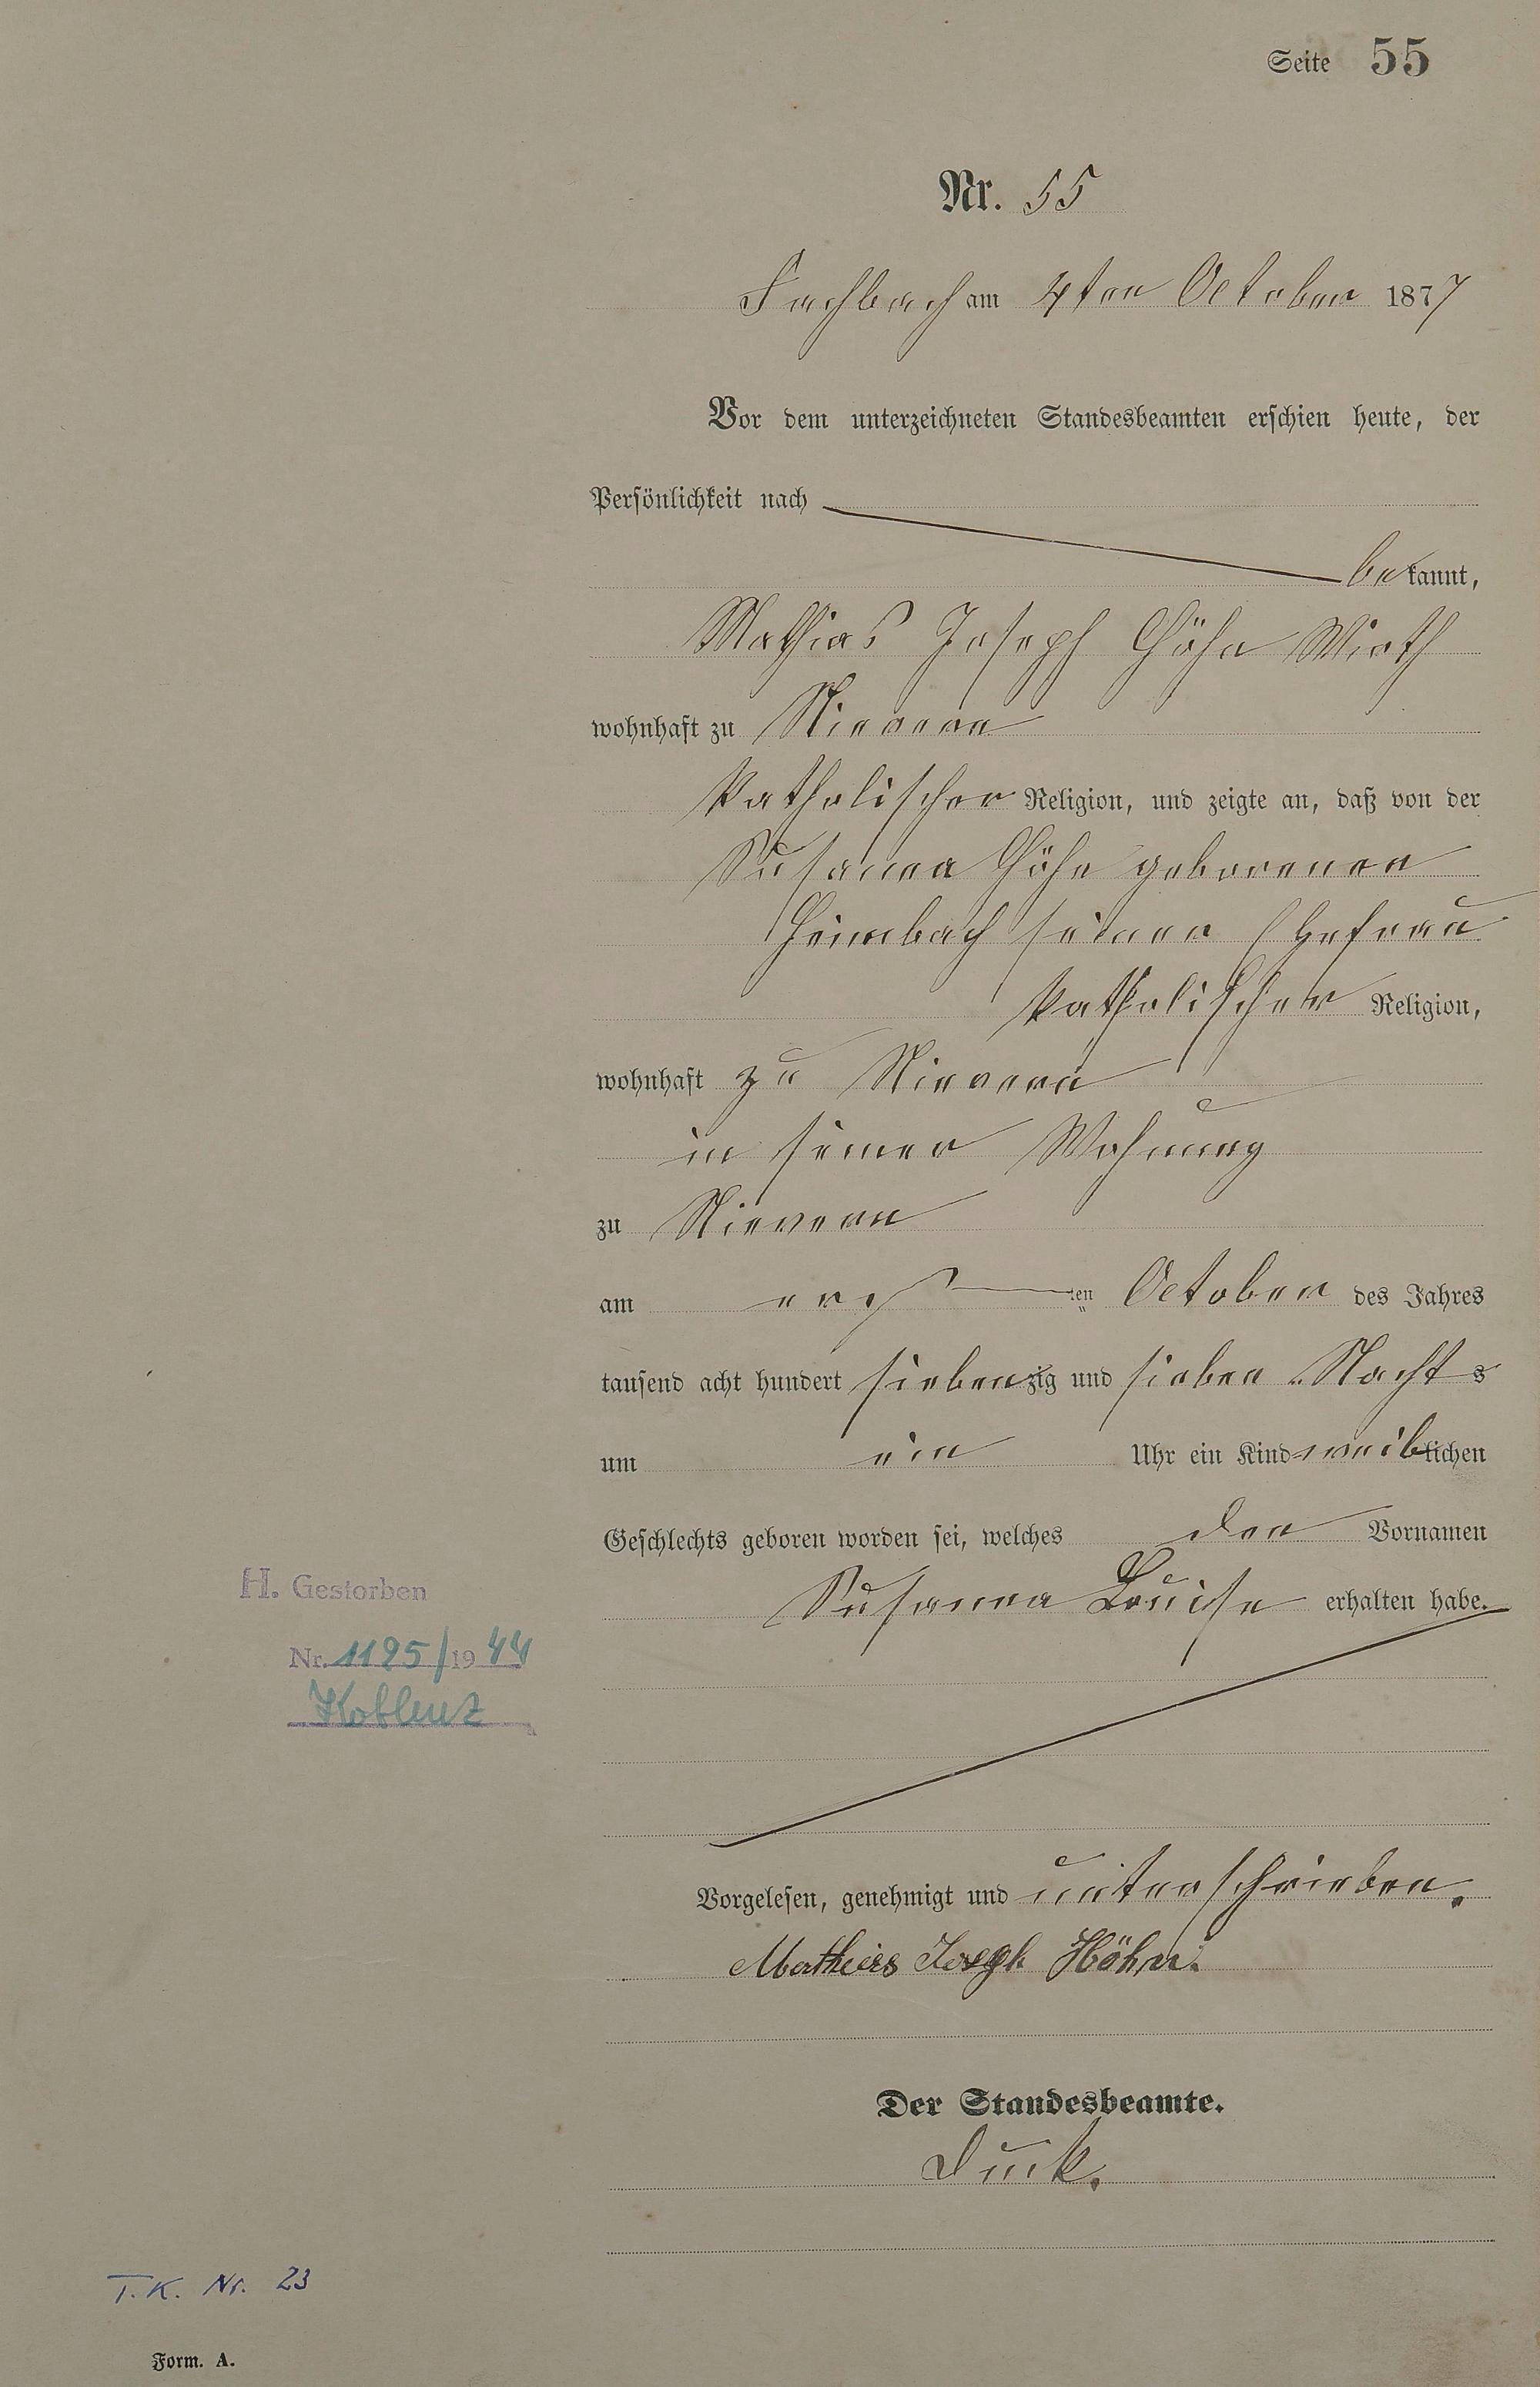 Seite 55
Nr. 55
Fachbach am 4ten October 1877
Vor dem unterzeichneten Standesbeamten erschien heute, der
Persönlichkeit nach
bekannt,
Mathias Joseph Höhn Wirth
wohnhaft zu Nievern
katholischer Religion, und zeigte an, daß von der
Susanna Höhn geborenen
Heimbach seiner Ehefrau
katholischer Religion,
wohnhaft zu Nievern
in seiner Wohnung
zu Nievern
am ersten October des Jahres
tausend acht hundert siebenzig und sieben Nachts
um ein Uhr ein Kind weiblichen
Geschlechts geboren worden sei, welches den Vornamen
Susanna Louise erhalten habe.
H. Gestorben
Nr. 1195/1944
Koblenz
Vorgelesen, genehmigt und unterschrieben.
Mathias Joseph Höhn.
Der Standesbeamte.
T.K. Nr. 23
Form. A.